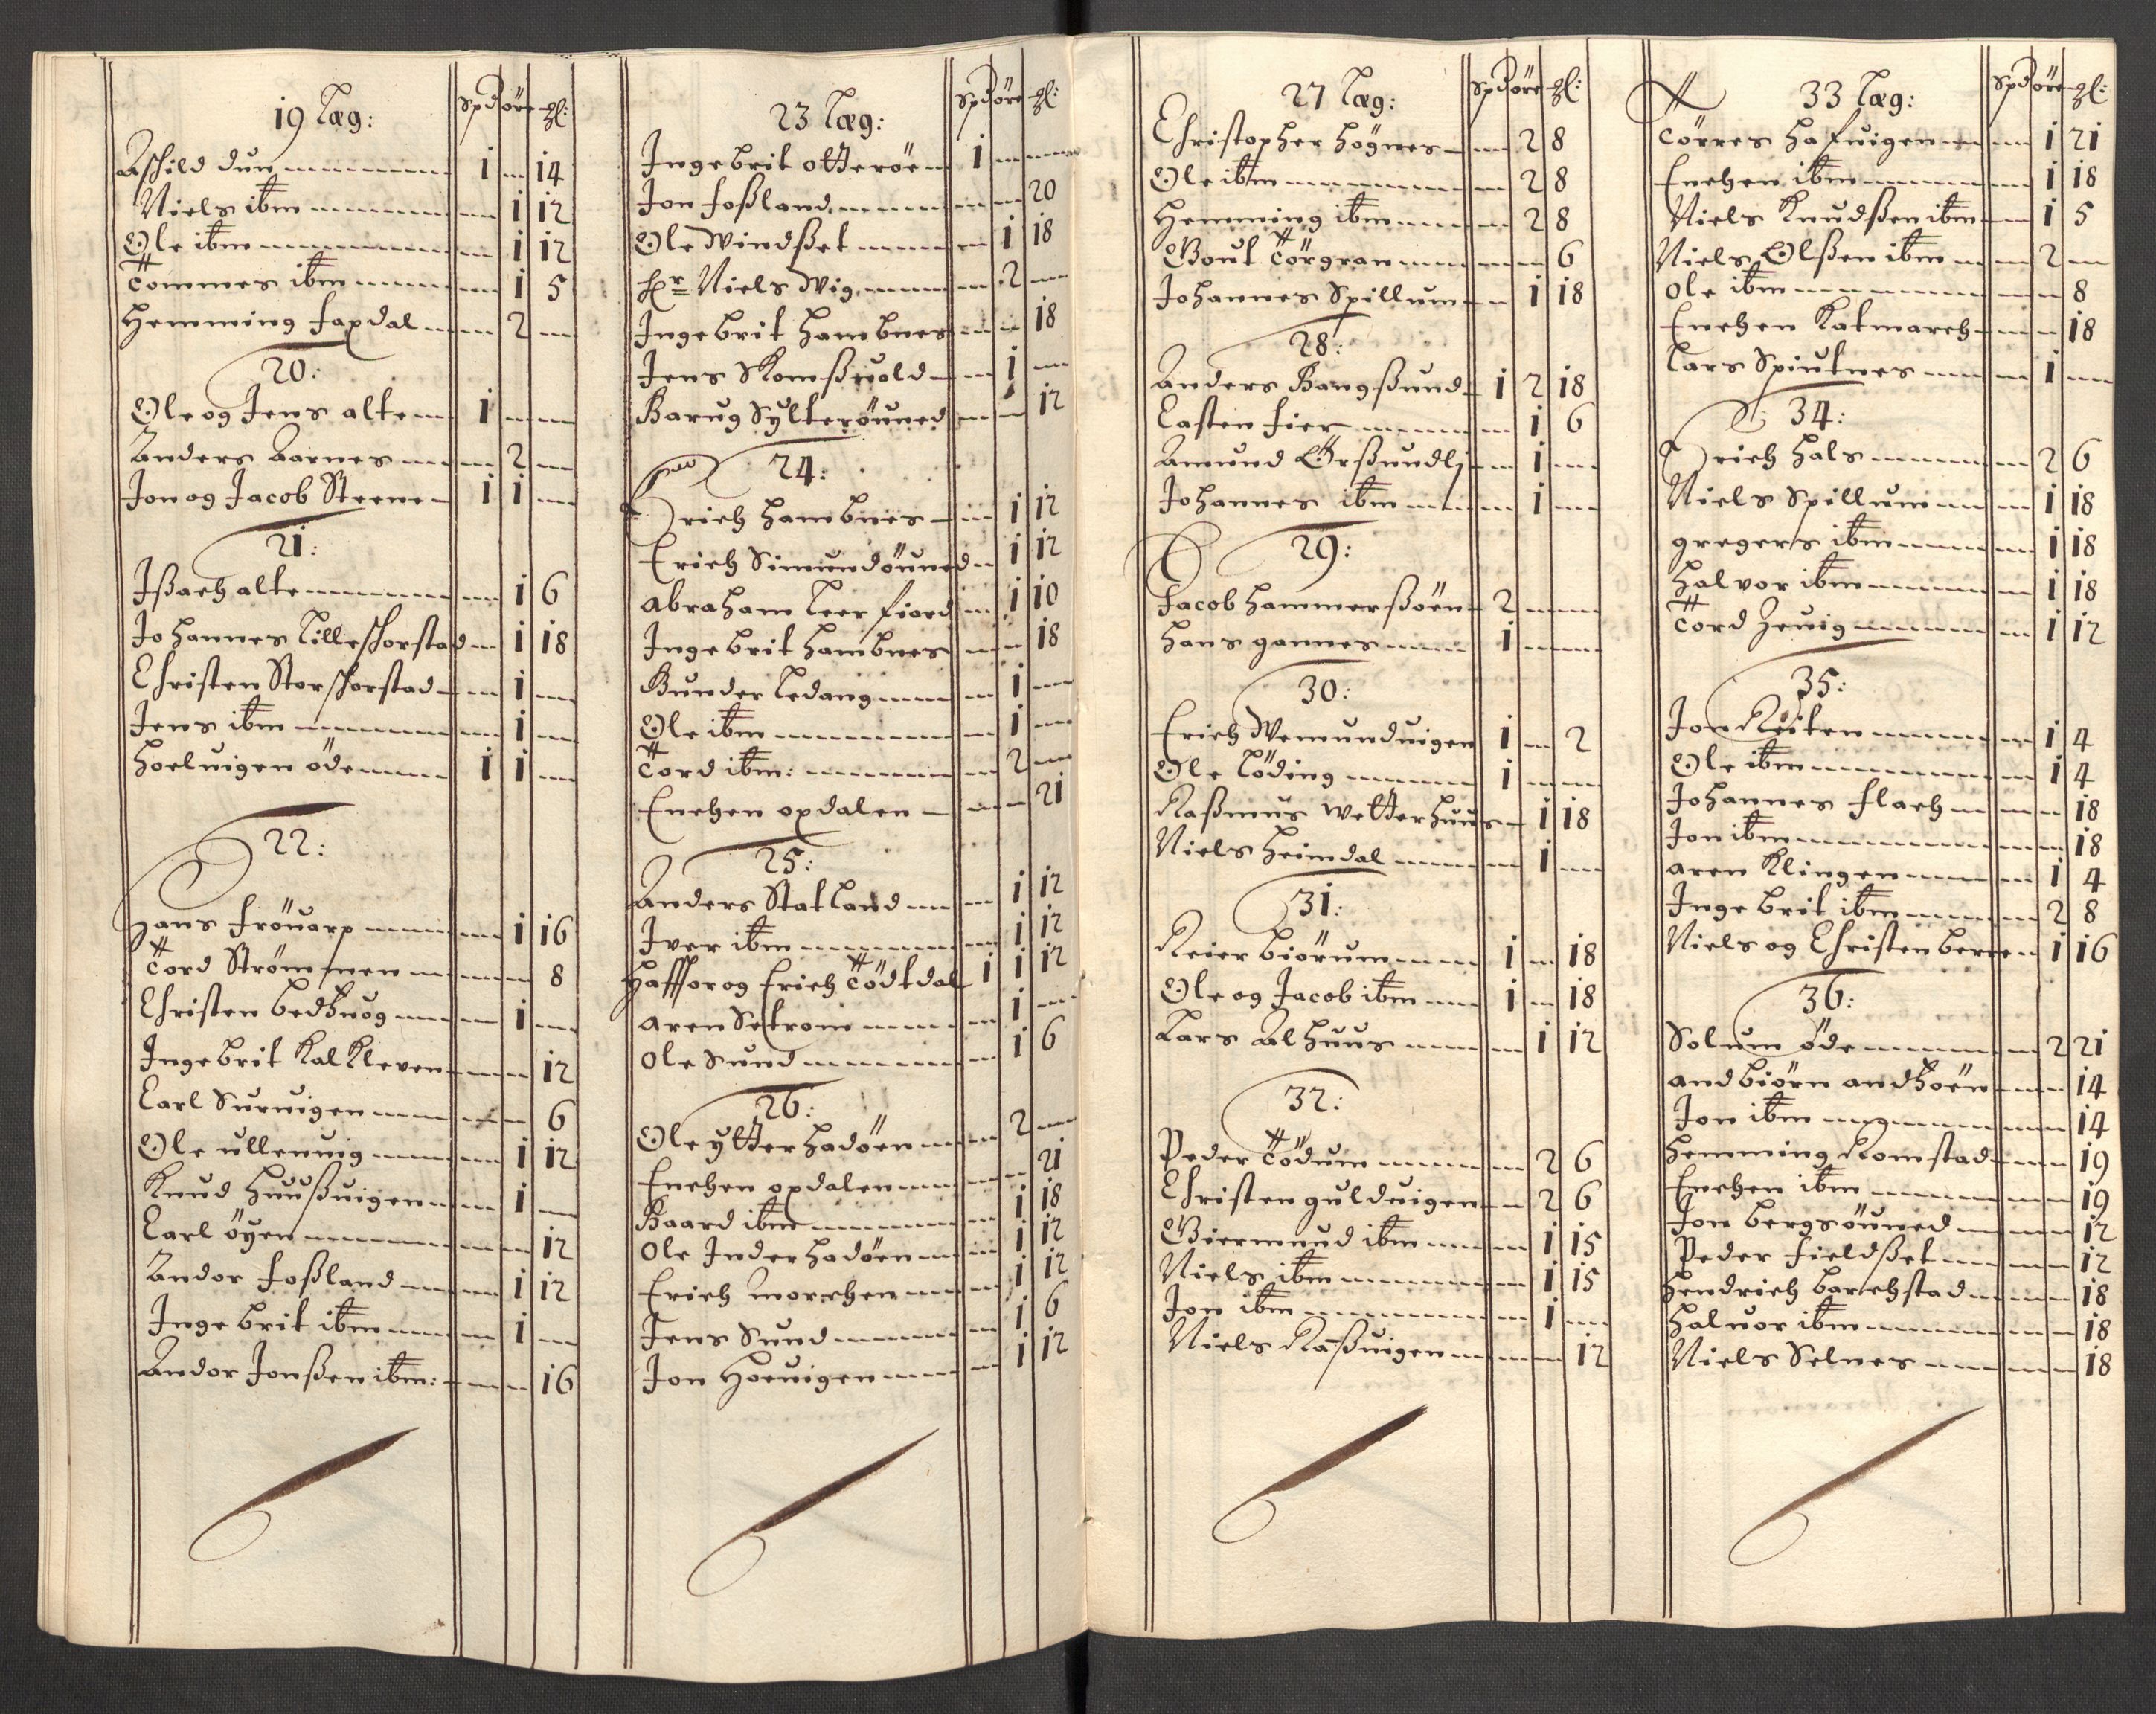 19 Læg: Spd öre gl:
Aschild dun 1 — 14
Niels ibm — 1 12
Ole ibm — 1 12
Tommes ibm — 1 5
Hemming Faxdal — 2 —
20:
Ole og Jens alte 1 — —
Anders Aarnes — 2 —
Jon og Jacob Steene 1 1 —
21:
Ißach alte — 1 6
Johannes Lilleschorstad — 1 18
Christen Storschorstad — 1 —
Jens ibm — 1 —
Hoeluigen öde 1 1 —
22:
Hans Fröuarp — 1 16
Tord Strömmen — — 8
Christen bedhuog — 1 —
Ingebrit Kalkleven — — 12
Carl Suruigen — — 6
Ole ullenuig — 1 12
Knud Huußuigen — 1 —
Carl öyen — — 12
Andor Foßland — 1 12
Ingebrit ibm — 1 —
Andor Jonßen ibm: — — 16
23 Læg: Spd öre gl:
Ingebrit otterøe 1 — —
Jon Foßland — — 20
Ole Windßet — 1 18
Hr Niels Wig — 2 —
Ingebrit Hambnes — — 18
Jens Skomßuold — 1 —
Barug Sylterøuned — — 12
24:
Erich Hambnes — 1 12
Erich Simundöuned — 1 12
Abraham Leerfiord — 1 10
Ingebrit Hambnes — — 18
Gunder Ledang — 1 —
Ole ibm — 1 —
Tord ibm: — 2 —
Enchen opdalen — — 21
25:
Anders Statland — 1 12
Iver ibm — 1 12
Haffor og Erich Tödtdal 1 1 12
Aren Setrom — 1 —
Ole Sund — 1 6
26:
Ole ytter Hadöen — 2 —
Enchen opdalen — — 21
Baard ibm — 1 18
Ole Inder Hadöen — 1 12
Erich Morchen — 1 12
Jens Sund — 1 6
Jon Hoeuigen — 1 12
27 Læg: Spd öre gl:
Christopher Högnes — 2 8
Ole ibm — 2 8
Hemming ibm — 2 8
Gout Törgran — — 6
Johannes Spillum — 1 18
28:
Anders Bangßund 1 2 18
Casten Fier — 1 6
Amund Örßundli — 1 —
Johannes ibm — 1 —
29:
Jacob Hammersßøen 2 — —
Hans gannes 1 — —
30:
Erich Wemunduigen 1 — 2
Ole Löding 1 — —
Raßmus Wetterhuus — 1 18
Niels Heimdal — 1 —
31:
Reier biörum 1 — 18
Ole og Jacob ibm 1 — 18
Lars Alhuus — 1 12
32:
Peder Tödum — 2 6
Christen gulduigen — 2 6
Giermund ibm — 1 15
Niels ibm — 1 15
Jon ibm — 1 —
Niels Raßuigen — — 12
33 Læg: Spd öre gl:
Törres Hafuigen — 1 21
Enchen ibm — 1 18
Niels Knudßen ibm — 1 5
Niels Olßen ibm — 2 —
Ole ibm — — 8
Enchen Katmarch — — 18
Lars Spiutnes — 1 —
34:
Erich Hals — 2 6
Niels Spillum — 1 18
gregers ibm — 1 18
Halvor ibm — 1 18
Tord Zeuig — 1 12
35:
Jon Reiten — 1 4
Ole ibm — 1 4
Johannes Flach — — 18
Jon ibm — — 18
Aren Klingen — 1 4
Ingebrit ibm — 2 8
Niels og Christen berre — 1 16
36:
Solum öde — 2 21
Andbiörn andhoen — — 14
Jon ibm — — 14
Hemming Romstad — — 19
Enchen ibm — — 19
Jon bergsöuned — — 12
Peder Fieldßet — — 12
Hendrich barchstad — — 18
Haluor ibm — — 18
Niels Selnes — — 18